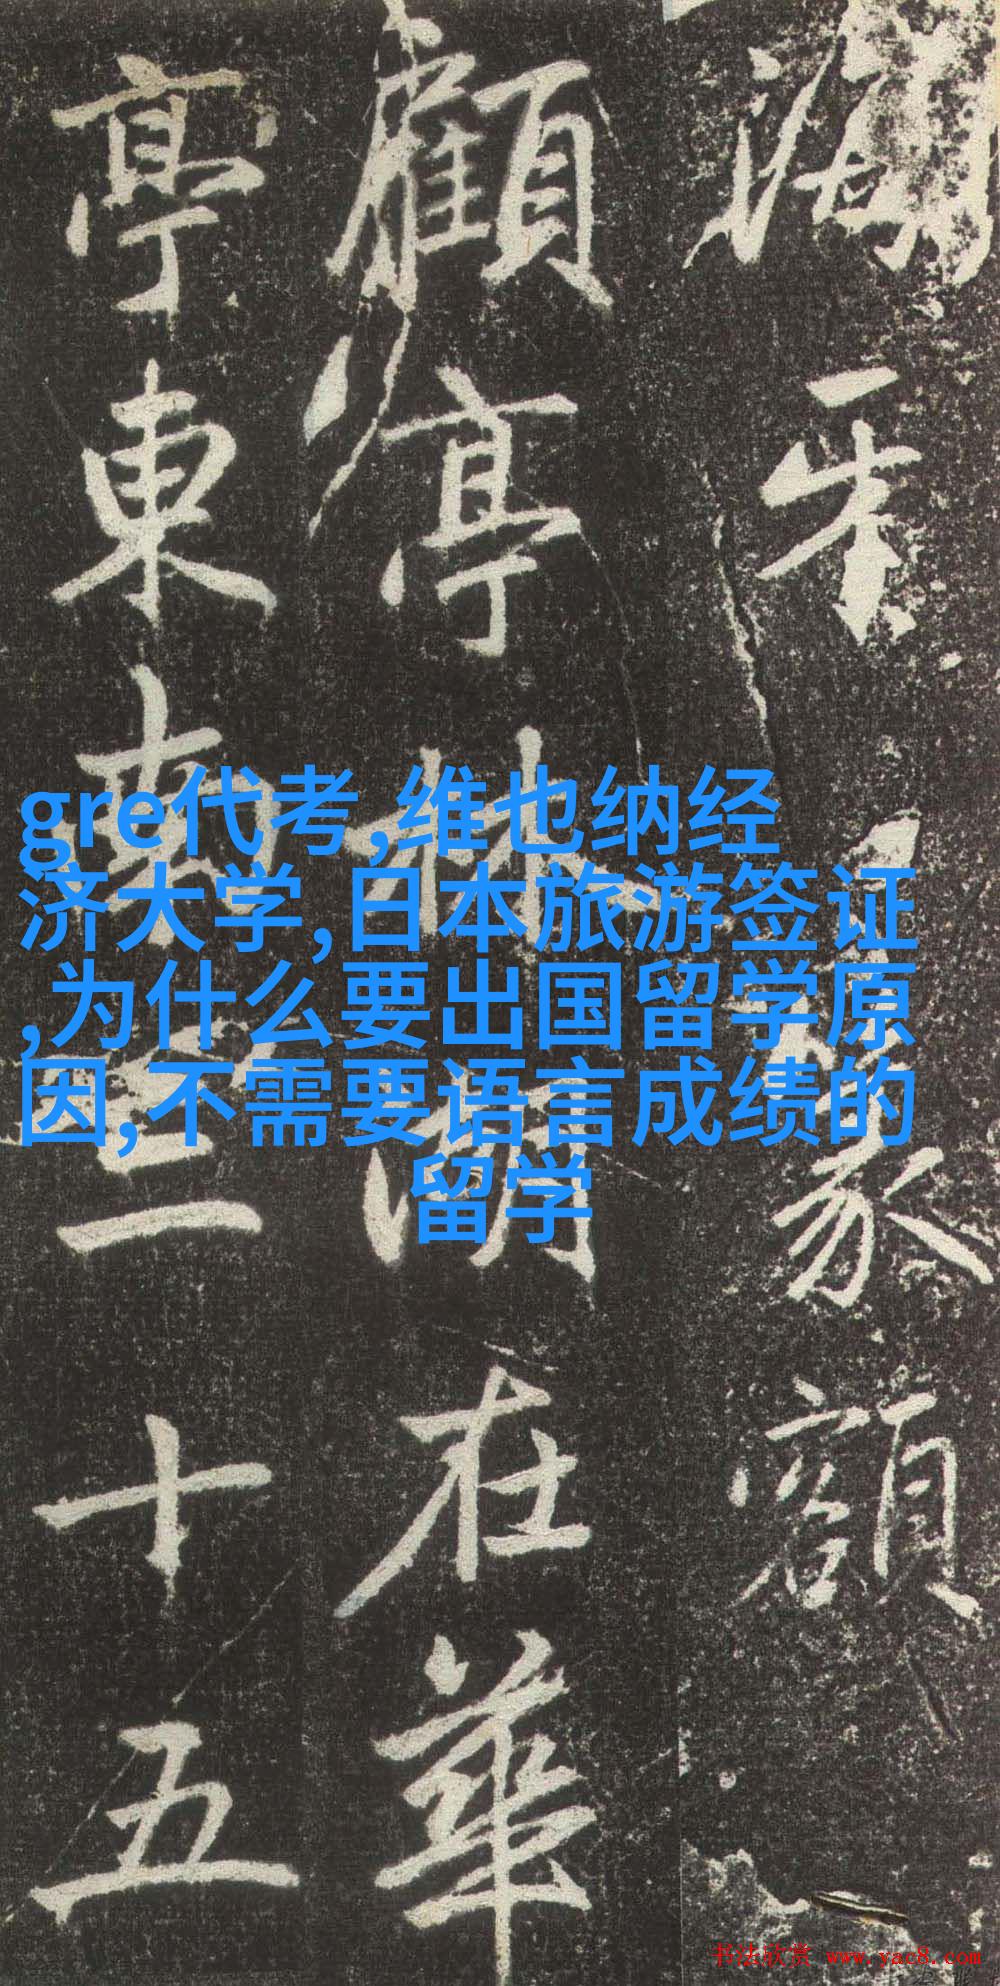 額
顧亭林湖在華
亭東三十五
gre代考,维也纳经
济大学,日本旅游签证
,为什么要出国留学原
因,不需要语言成绩的
留学
书法欣赏 www.yac8.com